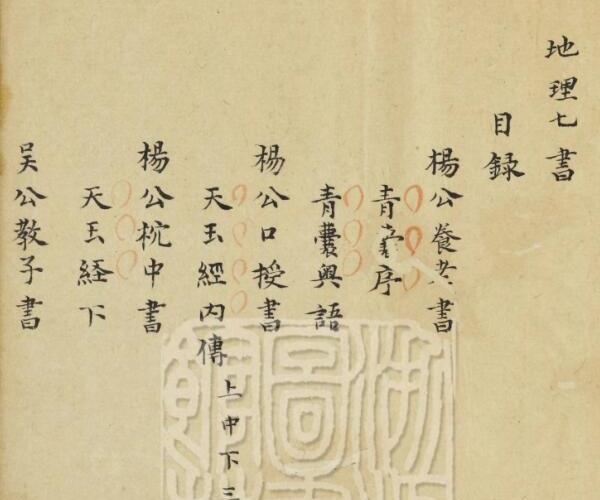 地理七書
目録
楊公養老書
青囊序
青囊奧語
楊公口授書
天玉經内傳 上中下三
楊公枕中書
天玉経下
吴公教子書